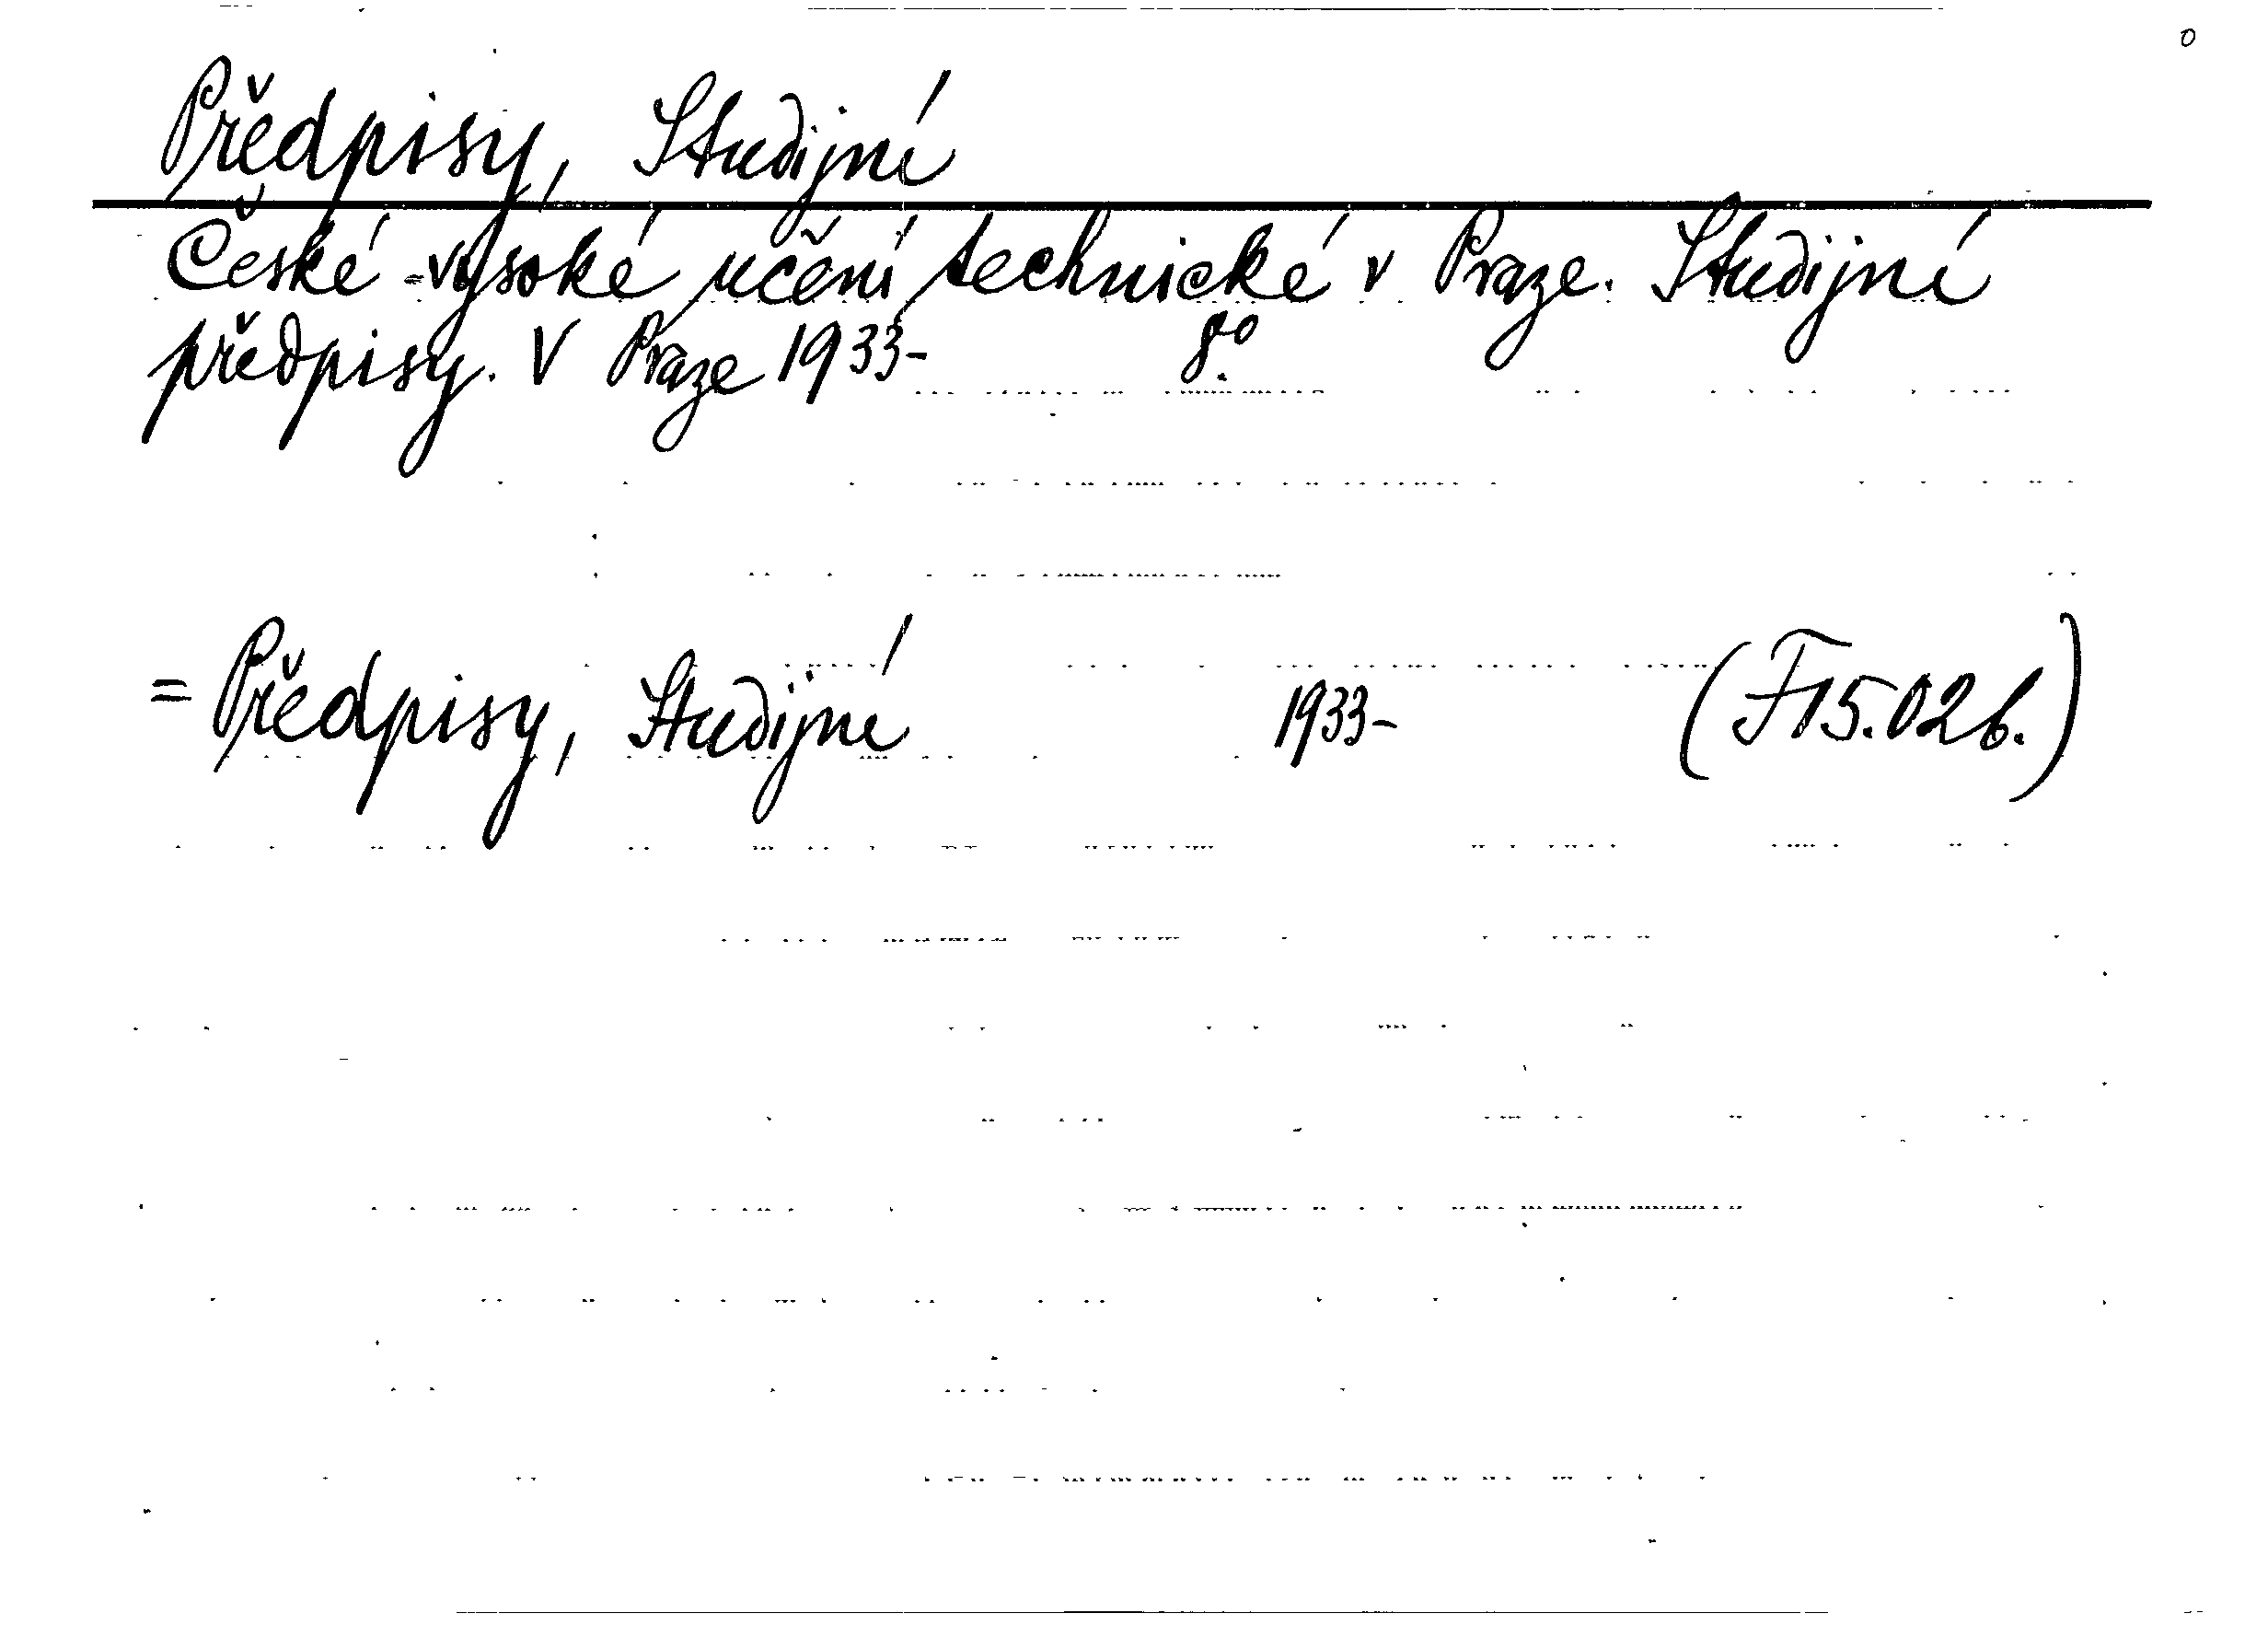 0
Předpisy, Studijní
České vysoké učení technické v Praze. Studijní
předpisy. V Praze 1933- 8°.
= Předpisy, Studijní 1933- (F15.026.)